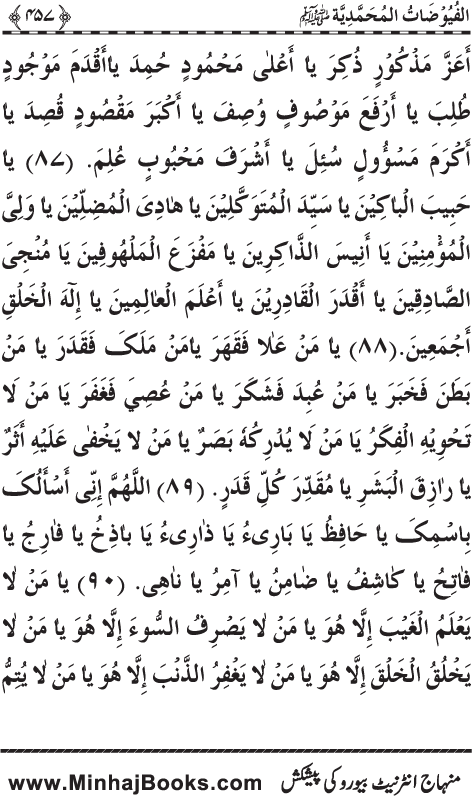 الفُیُوْضَاتُ المُحَمَّدِیَّة ﷺ ﴿۴۵۷﴾
أَعَزَّ مَذْكُوْرٍ ذُكِرَ يا أَعْلٰى مَحْمُودٍ حُمِدَ ياأَقْدَمَ مَوْجُودٍ
طُلِبَ يا أَرْفَعَ مَوْصُوفٍ وُصِفَ يا أَكْبَرَ مَقْصُودٍ قُصِدَ يا
أَكْرَمَ مَسْؤُولٍ سُئِلَ يا أَشْرَفَ مَحْبُوبٍ عُلِمَ. (٨٧) يا
حَبِيبَ الْباكِيْنَ يا سَيِّدَ الْمُتَوَكِّلِيْنَ يا هٰادِىَ الْمُضِلِّيْنَ يا وَلِيَّ
الْمُؤْمِنِيْنَ يَا أَنِيسَ الذَّاكِرِينَ يا مَفْزَعَ الْمَلْهُوفِينَ يَا مُنْجِىَ
الصَّادِقِينَ يا أَقْدَرَ الْقَادِرِيْنَ يا أَعْلَمَ الْعالِمِينَ يا إِلٰهَ الْخَلْقِ
أَجْمَعِينَ.(٨٨) يا مَنْ عَلٰا فَقَهَرَ يامَنْ مَلَكَ فَقَدَرَ يا مَنْ
بَطَنَ فَخَبَرَ يا مَنْ عُبِدَ فَشَكَرَ يا مَنْ عُصِيَ فَغَفَرَ يَا مَنْ لَا
تَحْوِيْهِ الْفِكَرُ يَا مَنْ لَا يُدْرِكُهٗ بَصَرٌ يا مَنْ لا يَخْفٰى عَلَيْهِ أَثَرٌ
يا رازِقَ الْبَشَرِ ياٰ مُقَدِّرَ كُلِّ قَدَرٍ. (٨٩) اللَّهُمَّ إِنِّى أَسْأَلُكَ
باسْمِكَ يا حَافِظُ يَا بَارِىءُ يَا ذٰارِىءُ يَا باذِخُ يا فارِجُ يا
فاتِحُ يا كاشِفُ يا ضامِنُ يا آمِرُ يا ناهِى. (٩٠) يا مَنْ لَا
يَعْلَمُ الْغَيْبَ إِلَّا هُوَ يا مَنْ لٰا يَصْرِفُ السُّوءَ إِلَّا هُوَ يا مَنْ لٰا
يَخْلُقُ الْخَلْقَ إِلَّا هُوَ يا مَنْ لا يَغْفِرُ الذَّنْبَ إِلَّا هُوَ يا مَنْ لا يُتِمُّ
منہاج انٹرنیٹ بیورو کی پیشکش www.MinhajBooks.com